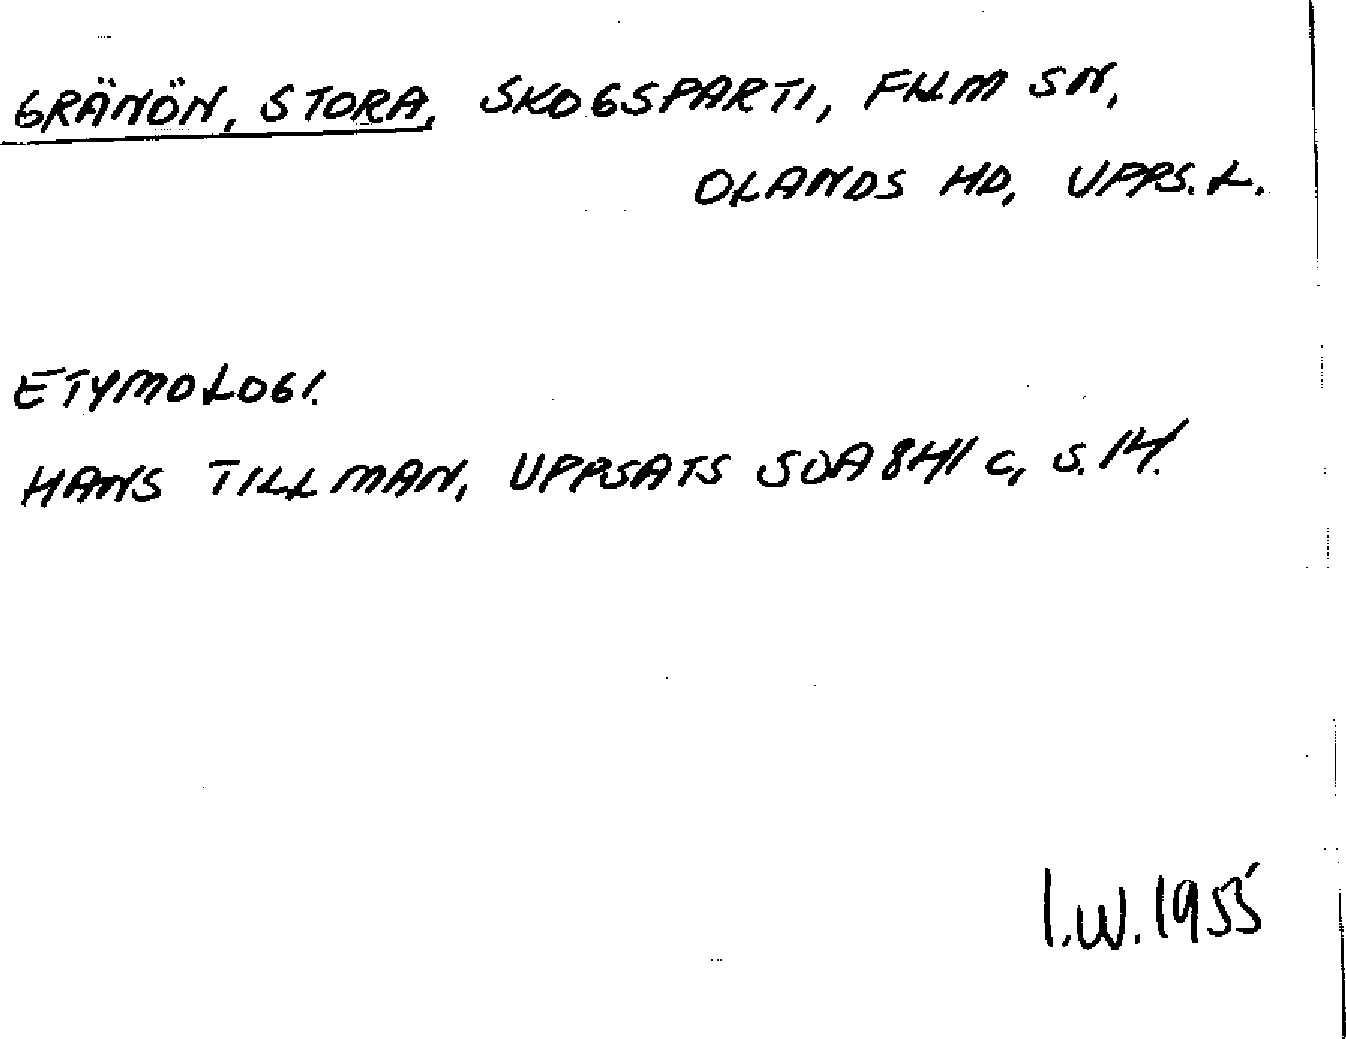 GRÄNÖN, STORA, SKOGSPARTI, FILM SN,
OLANDS HD, UPPS.L.
ETYMOLOGI.
HANS TILLMAN, UPPSATS SOA 841 C, S.14.
I.W. 1955